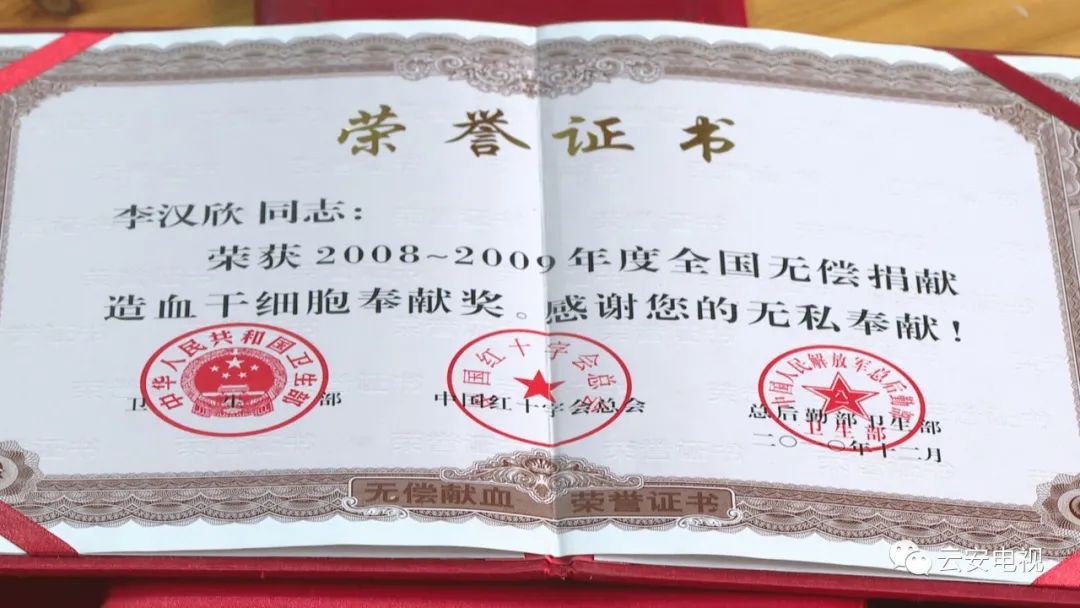 荣誉证书
李汉欣 同志：
荣获2008~2009年度全国无偿捐献
造血干细胞奉献奖。感谢您的无私奉献！
中华人民共和国卫生部
卫生部
中国红十字会总会
中国红十字会总会
中国人民解放军总后勤部
卫生部
总后勤部卫生部
二〇一〇年十二月
无偿献血 荣誉证书
云安电视